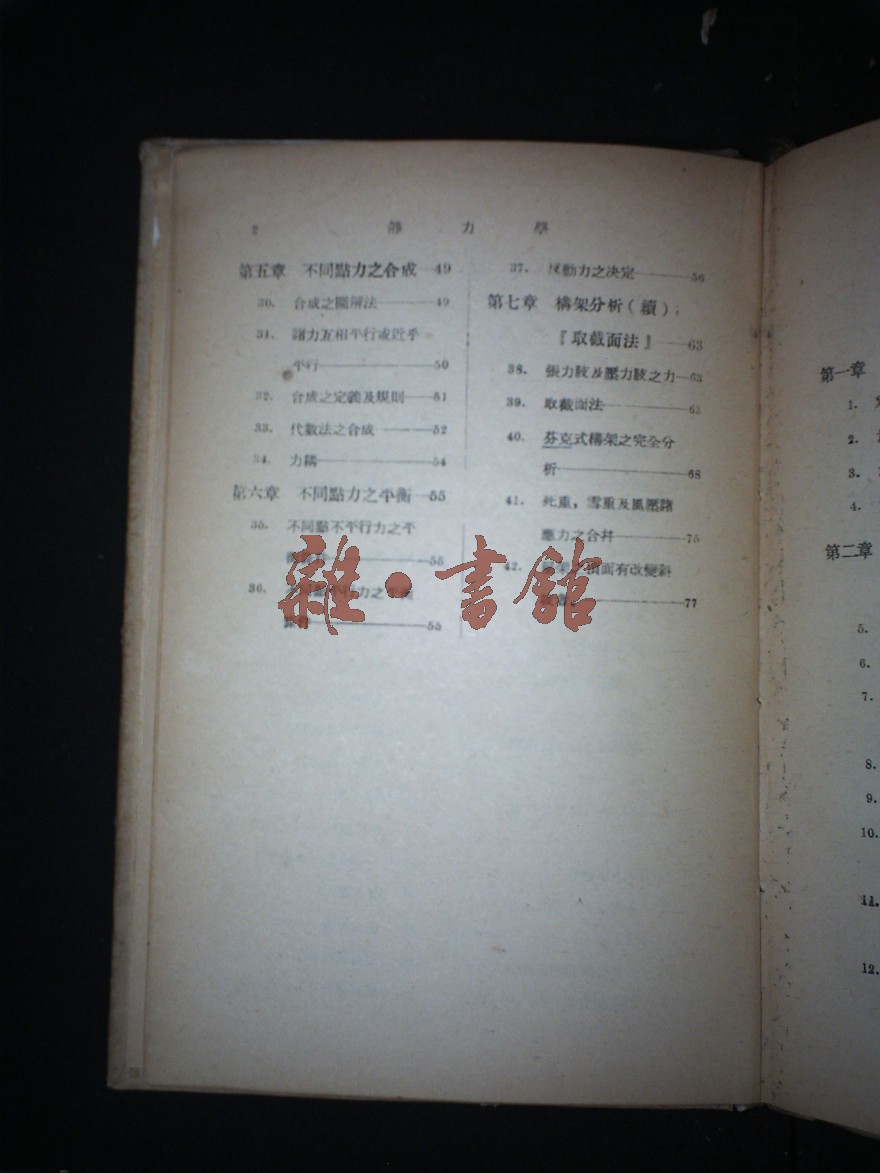 2 靜力學
第五章 不同點力之合成 49
30. 合成之圖解法 49
31. 諸力互相平行或近乎
平行 50
32. 合成之定義及規則 51
33. 代數法之合成 52
34. 力耦 54
第六章 不同點力之平衡 55
35. 不同點不平行力之平
55
36.
55
37. 反動力之決定 56
第七章 構架分析(續);
『取截面法』 63
38. 張力肢及壓力肢之力 63
39. 取截面法 63
40. 芬克式構架之完全分
析 68
41. 死重,雪重及風壓諸
應力之合并 75
42. 面有改變斜
77
雜·書館
第一章
1.
2.
3.
4.
第二章
5.
6.
7.
8.
9.
10.
11.
12.